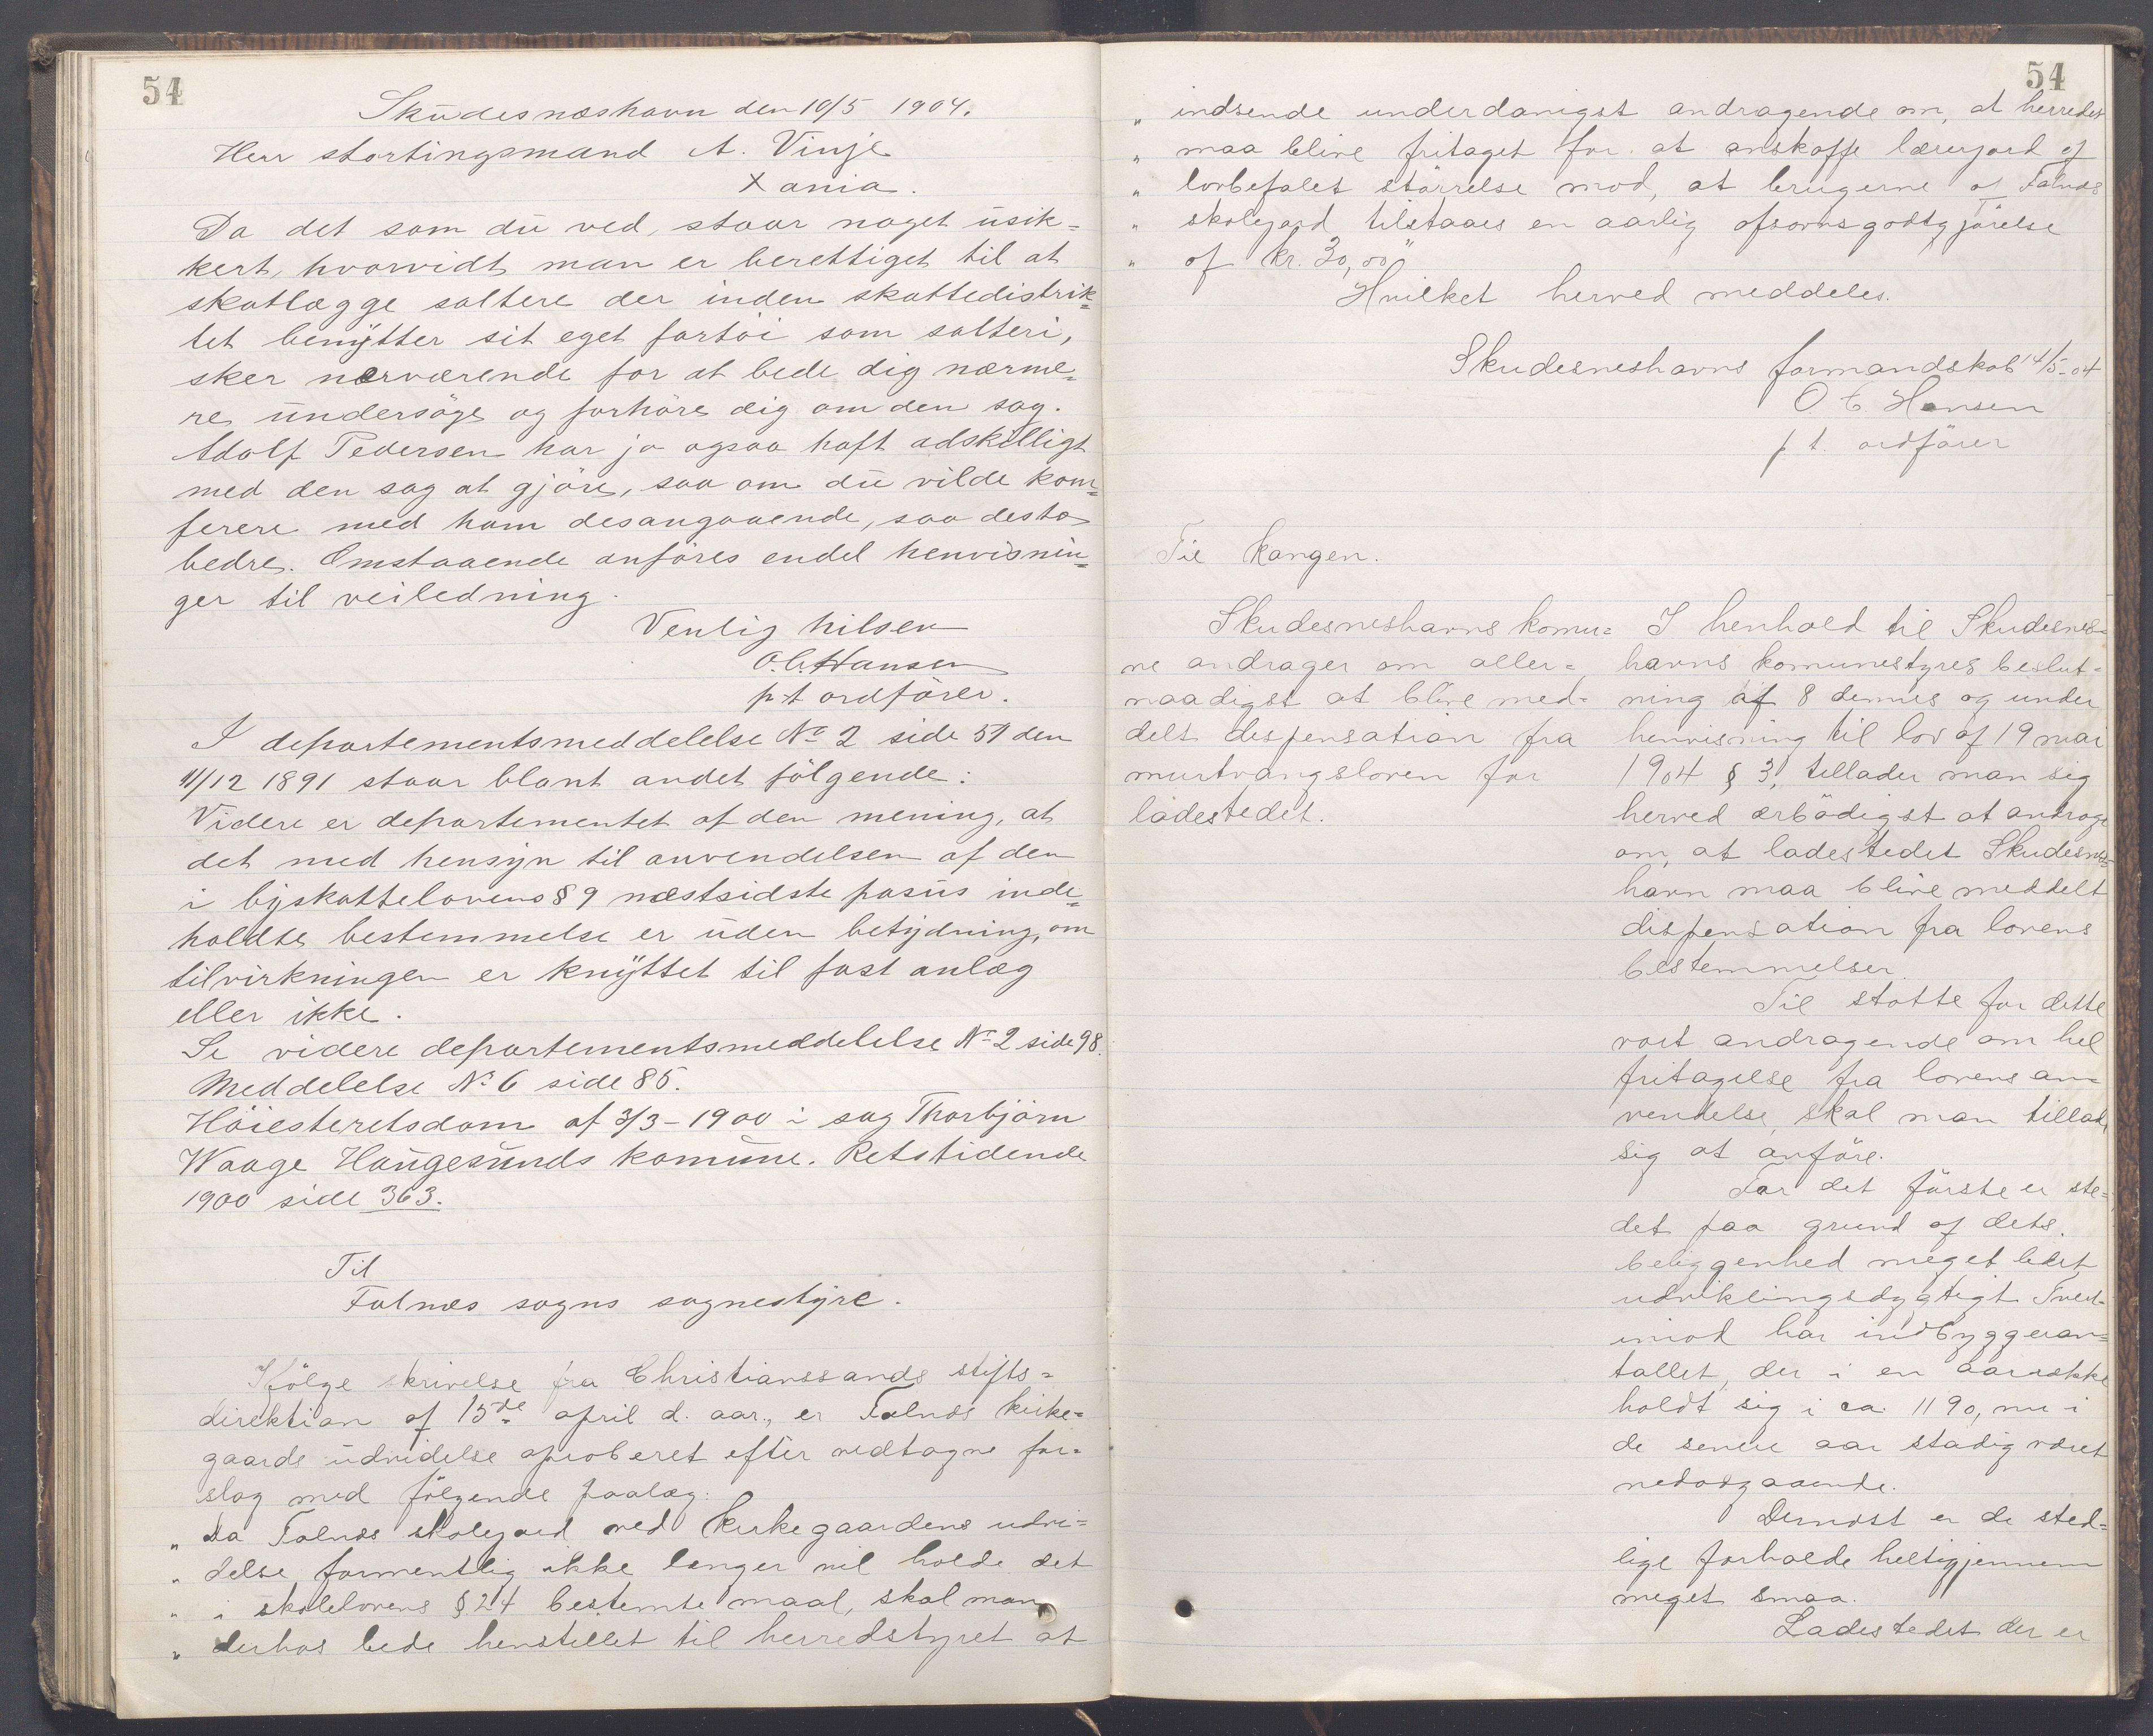 54
Skudesnæshavn den 10/5 1904.
Herr stortingsmand A. Vinje
Xania.
Da det som du ved, staar noget usik=
kert, hvorvidt man er berettiget til at
skatlægge saltere der inden skattedistrik=
tet benytter sit eget fartöi som salteri,
sker nærværende for at bede dig nærme=
re undersöge og forhöre dig om den sag.
Adolf Pedersen har jo ogsaa haft adskilligt
med den sag at gjöre, saa om du vilde kon=
ferere med ham desangaaende, saa desto
bedre. Omstaaende anföres endel henvisnin=
ger til veiledning.
Venlig hilsen
O.C. Hansen
p.t ordförer.
I departementsmeddelelse No 2 side 51 den
11/12 1891 staar blant andet fölgende:
Videre er departementet af den mening, at
det med hensyn til anvendelsen af den
i byskattelovens § 9 næstsidste pasus inde=
holdte bestemmelse er uden betydning, om
tilvirkningen er knyttet til fast anlæg
eller ikke.
Se videre departementsmeddelelse No 2 side 98.
Meddelelse No 6 side 85.
Höiesteretsdom af 3/3 - 1900 i sag Thorbjörn
Waage Haugesunds komune. Retstidende
1900 side 363.
Til
Falnæs sogns sognestyre.
Ifölge skrivelse fra Christianssands stifts=
direktion af 15de april d. aar., er Falnæs kirke=
gaards udvidelse aproberet efter vedtagne for=
slag med fölgende paalæg:
" Da Falnæs skolejord ved kirkegaardens udvi=
" delse formentlig ikke længer vil holde det
" i skolelovens § 24 bestemte maal, skal man
" derhos bede henstillet til herredstyret at
54
" indsende underdanigst andragende om, at herredet
" maa blive fritaget for at anskaffe lærerjord af
" lovbefalet störrelse mod, at brugerne af Falnæs
" skolejord tilstaaes en aarlig afsavnsgodtgjörelse
" af kr. 30,00"
Hvilket herved meddeles.
Skudesneshavns formandskab 14/5-04
O C. Hansen
p t. ordförer
Til Kongen.
Skudesneshavns komu=
ne andrager om aller=
naadigst at blive med=
delt dispensation fra
murtvangsloven for
ladestedet.
I henhold til Skudesnes=
havns komunestyres beslut=
ning af 8 dennes og under
henvisning til lov af 19 mai
1904 § 3, tillader man sig
herved ærbödigst at andrage
om, at ladestedet Skudesnes=
havn maa blive meddelt
dispensation fra lovens
bestemmelser.
Til stötte for dette
vort andragende om hel
fritagelse fra lovens an=
vendelse, skal man tillade
sig at anföre.
For det förste er ste=
det paa grund af dets
beliggenhed meget lidet
udviklingsdygtigt. Tvert=
imod har indbyggeran=
tallet, der i en aarrække
holdt sig i ca. 1190, nu i
de senere aar stadig været
nedadgaaende.
Dernæst er de sted=
lige forholde heltigjennem
meget smaa.
Ladestedet der er